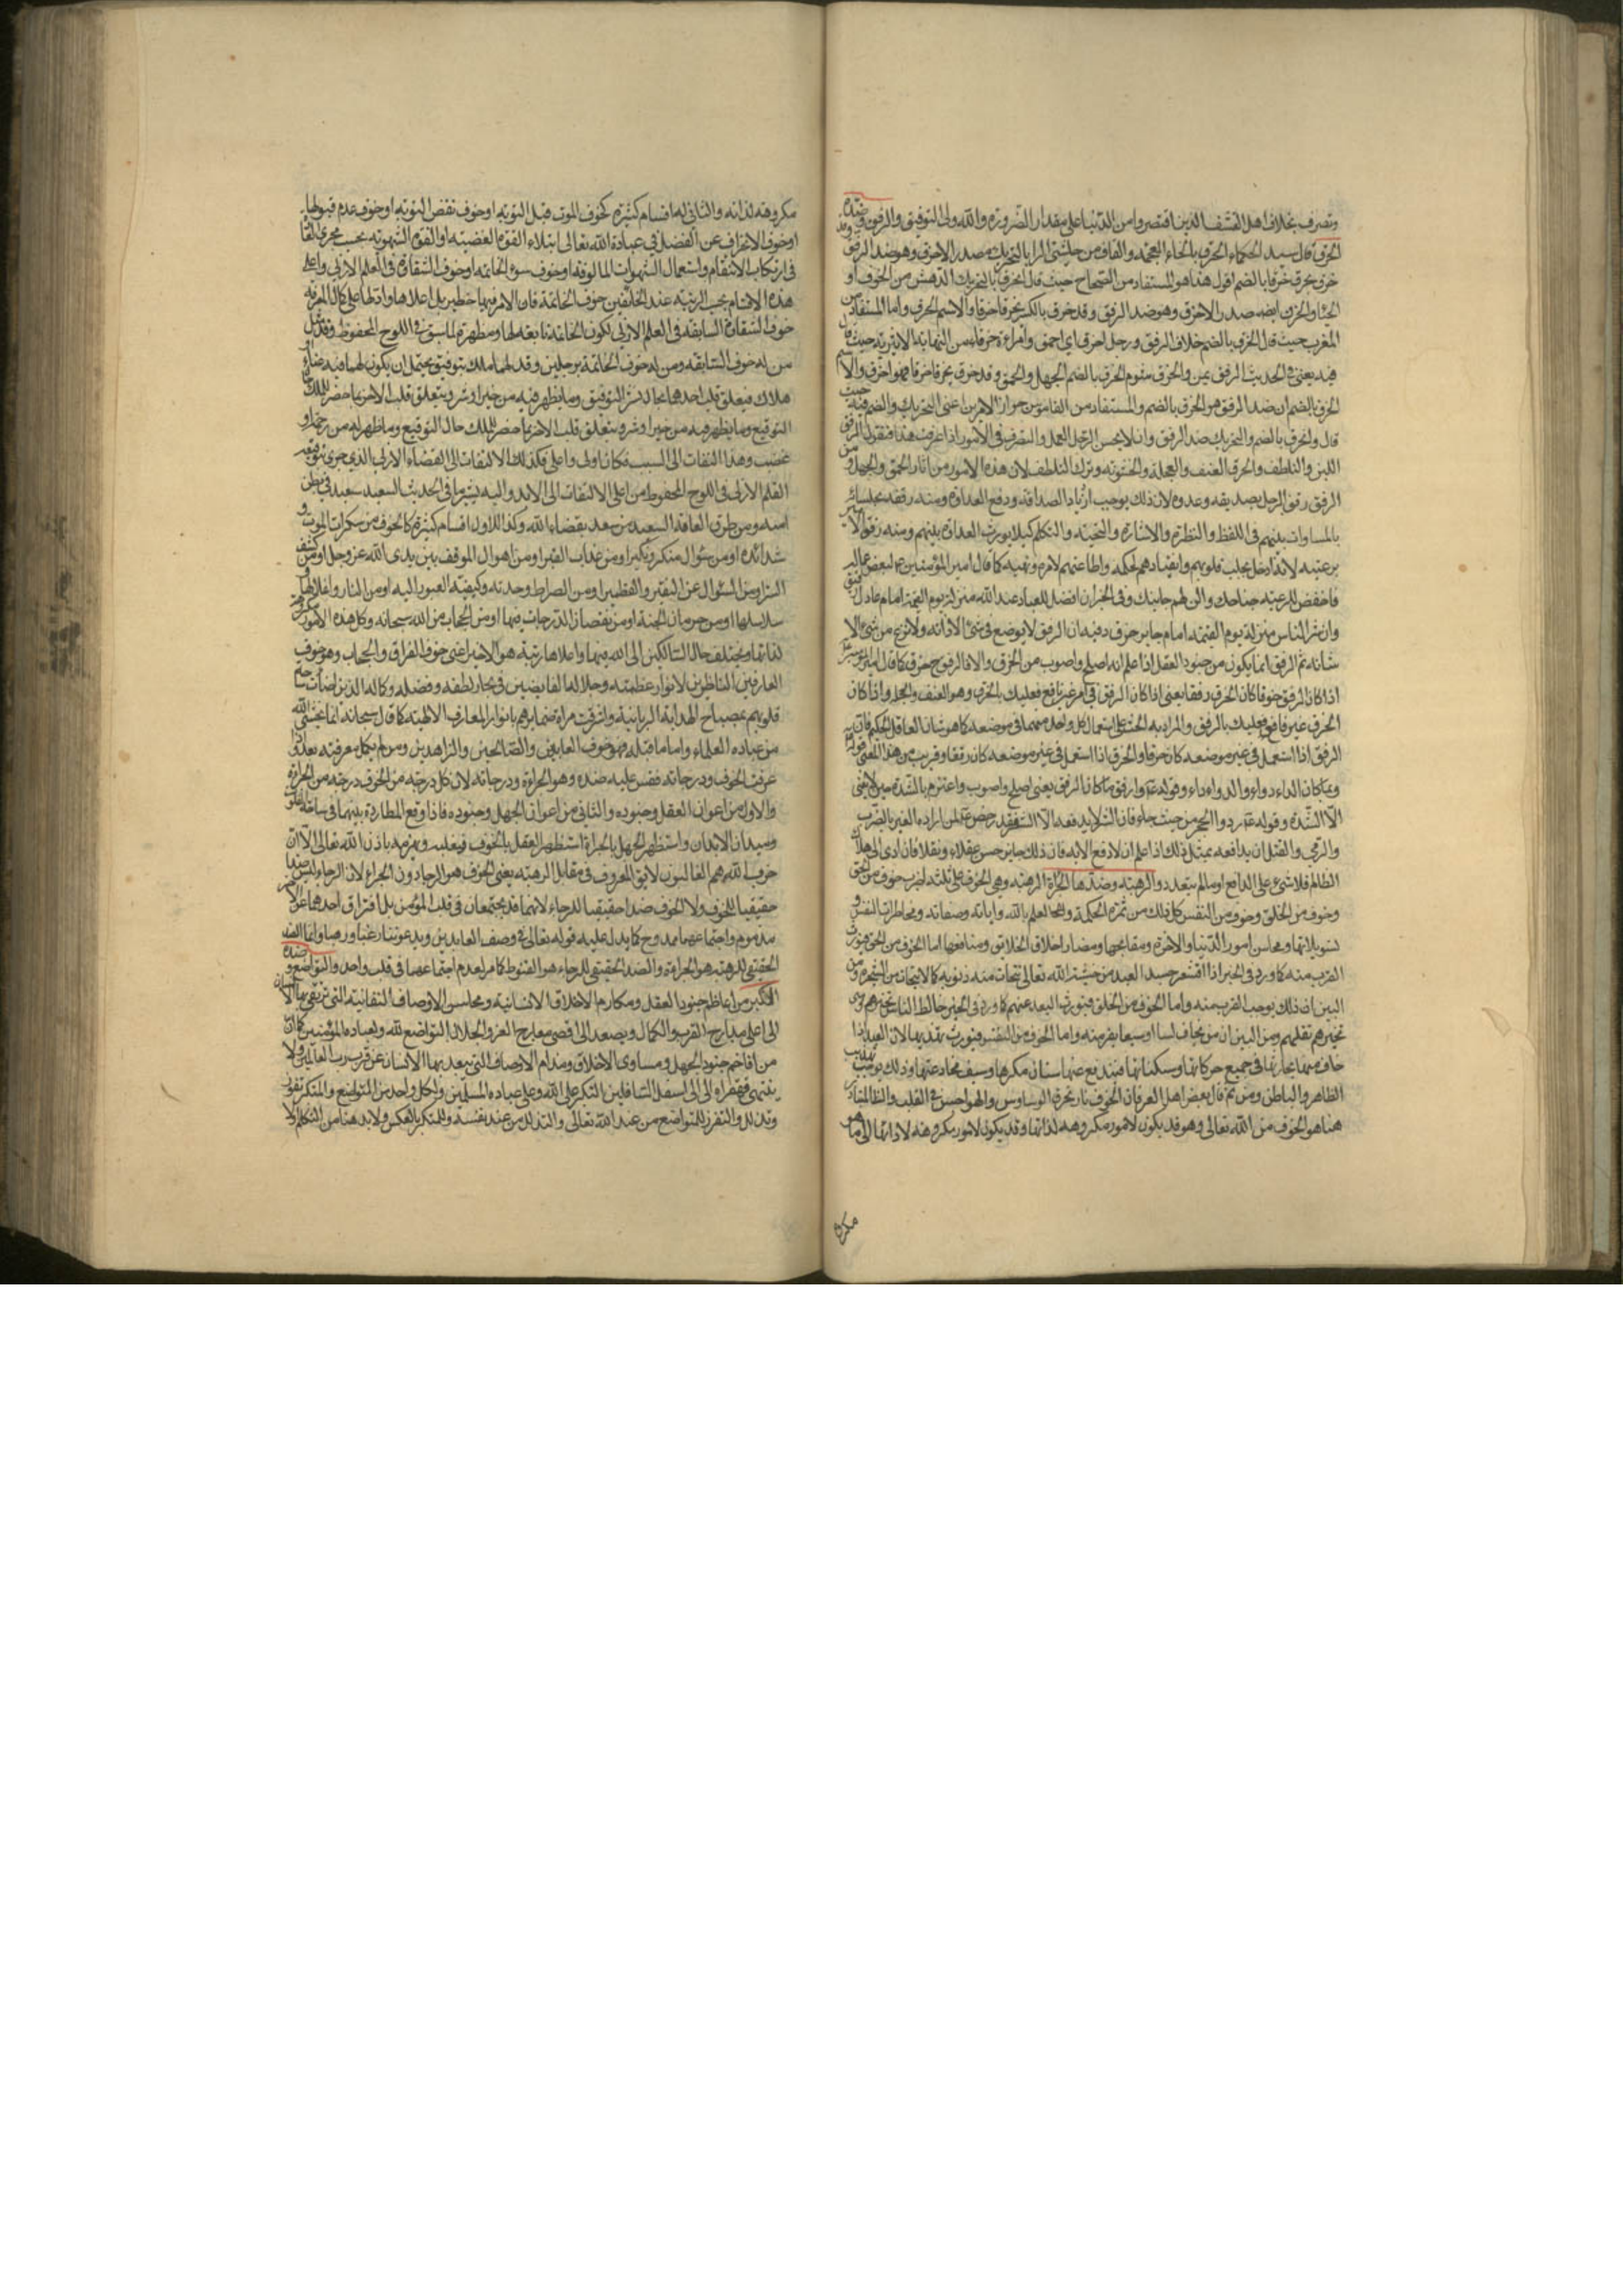 وتصرف بخلاف اهل التقشف الذين اقتصروا من الدنيا على مقدار الضرورة والله ولى التوفيق والرفق وضده
الخرق قال سيد الحكماء الخرق بالخاء المعجمة والقاف من حاشيتى المرايا بالتحريك مصدر الاخرق وهو ضد الرفق وقد
خرق يخرق خرقا بالضم اقول هذا هو المستفاد من الصحاح حيث قال الخرق بالتحريك الدهش من الخوف او
الحياء والخرق ايضا مصدر الاخرق وهو ضد الرفق وقد خرق بالكسر يخرق خرقا والاسم الخرق واما المستفاد من
المغرب حيث قال الخرق بالضم خلاف الرفق ورجل اخرق اى احمق وامراة خرقاء ومن النهاية الاثيرية حيث قال
فيه يعنى فى الحديث الرفق يمن والخرق شوم الخرق بالضم الجهل والحمق وقد خرق يخرق خرقا فهو اخرق والاسم
الخرق بالضم ان ضد الرفق هو الخرق بالضم والمستفاد من القاموس جواز الامرين اعنى التحريك والضم فيه حيث
قال والخرق بالضم والتحريك ضد الرفق وان لا يحسن الرجل العمل والتصرف فى الامور اذا عرفت هذا فنقول الرفق
اللين والتلطف والخرق العنف والعجلة والخشونة وترك التلطف لان هذه الامور من اثار الحمق والجهل ومن
الرفق رفق الرجل بصديقه وعدوه لان ذلك يوجب ازدياد الصداقة ودفع العداوة ومنه رفقه بجلسائه
بالمساوات بينهم فى اللفظ والنظرة والاشارة والتحية والتكلم كيلا يورث العداوة بينهم ومنه رفق الامير
برعيته لانه ادخل بجلب قلوبهم وانقيادهم لحكمه واطاعتهم لامره ونهيه كما قال امير المؤمنين ع لبعض عماله
فاخفض للرعية جناحك والن لهم جانبك وفى الخبر ان افضل العباد عند الله منزلة يوم القيمة امام عادل رفيق
وان شر الناس منزلة يوم القيمة امام جابر خرق وفيه ان الرفق لا يوضع فى شئ الا زانه ولا نزع من شئ الا
شانه ثم الرفق انما يكون من جنود العقل اذا علم انه اصلح واصوب من الخرق والا فالرفق ح خرق كما قال امير المؤمنين ع
اذا كان الرفق خرقا كان الخرق رفقا يعنى اذا كان الرفق فى امر غير نافع فعليك بالخرق وهو العنف والعجلة واذا كان
الخرق غير نافع فعليك بالرفق والمراد به الحث على استعمال كل واحد منهما فى موضعه كما هو شان العاقل الحكيم فان
الرفق اذا استعمل فى غير موضعه كان خرقا والخرق اذا استعمل فى غير موضعه كان رفقا وقريب من هذا المعنى قوله ع
وربما كان الداء دواء والدواء داء وقوله ع وارفق ما كان الرفق يعنى اصلح واصوب واعتزم بالشدة حين لا يغنى
الا الشدة وقوله ع ردوا الحجر من حيث جاء فان الشر لا يدفعه الا الشر فقد رخص ع لمن اراده الغير بالضرب
والرمى والقتل ان يدافعه بمثل ذلك اذا علم ان لا دفع الا به فان ذلك جايز حسن عقلا ونقلا فان ادى الى هلاك
الظالم فلا شئ على الدافع او ما لم يتعد والرهبة وضدها الجراة الرهبة وهى الخوف على ثلثة اضرب خوف من الحق
وخوف من الخلق وخوف من النفس كل ذلك من ثمرة الحكمة والعلم بالله واياته وصفاته ومخاطرات النفس و
تسويلاتها ومحاسن امور الدنيا والاخرة ومقابحها ومضار اخلاق الخلايق ومنافعها اما الخوف من الحق فيورث
القرب منه كما ورد فى الخبر اذا اقشعر جسد العبد من خشية الله تعالى تحات منه ذنوبه كما يتحات من الشجرة ومن
البين ان ذلك يوجب القرب منه واما الخوف من الخلق فيورث البعد عنهم كما ورد فى الخبر خالط الناس تخبرهم ومتى
تخبرهم تقلهم ومن البين ان من يخاف لسا او سبعا يفر منه واما الخوف من النفس فيورث تهذيبها لان العبد اذا
خاف منها يحارسها فى جميع حركاتها وسكناتها فيندفع عنها سنان مكرها وسيف مخادعتها وذلك يوجب تهذيب
الظاهر والباطن ومن ثم قال بعض اهل العرفان الخوف نار تحرق الوساوس والهواجس فى القلب والظ المتبادر
هنا هو الخوف من الله تعالى وهو قد يكون لامور مكروهة لذاتها وقد يكون لامور مكروهة لادائها الى ما هو
مكروه
مكروهة لذاته والثانى له اقسام كثيرة كخوف الموت قبل التوبة او خوف نقض التوبة او خوف عدم قبولها
او خوف الانحراف عن الفضل فى عبادة الله تعالى ابتلاء القوة الغضبية او القوة الشهوية بحسب مجرى العادة
فى ارتكاب الانتقام واستعمال الشهوات المالوفة او خوف سوء الخاتمة او خوف الشقاوة فى العلم الازلى واعلى
هذه الاقسام بحسب الرتبة عند المحققين خوف الخاتمة فان الامر فيها خطير بل اعلاها وادلها على كمال المعرفة
خوف الشقاوة السابقة فى العلم الازلى لكون الخاتمة تابعة لها ومظهرة لما سبق فى اللوح المحفوظ وقد مثل
من له خوف السابقة ومن له خوف الخاتمة برجلين وقد لهما ملك بتوقيع يحتمل ان يكون لهما فيه غناء او
هلاك فيعلق قلب احدهما بحال نشر التوقيع وما يظهر فيه من خير او شر ويتعلق قلب الاخر بما خطر للملك حال
التوقيع وما يظهر فيه من خير او شر ويتعلق قلب الاخر بما خطر للملك حال التوقيع وما ظهر له من رحمة او
غضب وهذا التفات الى السبب فكان اولى واعلى فكذلك الالتفات الى القضاء الازلى الذى جرى بتوقيعه
القلم الازلى فى اللوح المحفوظ من اعلى الالتفات الى الابد واليه يشير ما فى الحديث السعيد سعيد فى بطن
امه ومن طرق العامة السعيد من سعد بقضاء الله وكذا للاول اقسام كثيرة كالخوف من سكرات الموت و
شدائده او من سؤال منكر ونكير او من عذاب القبر او من اهوال الموقف بين يدى الله عز وجل او من كشف
الستر او من السؤال عن النقير والقطمير او من الصراط وحدته وكيفية العبور عليه او من النار واغلالها و
سلاسلها او من حرمان الجنة او من نقصان الدرجات فيها او من الحجاب من الله سبحانه وكل هذه الامور مكروهة
لذاتها ويختلف حال السالكين الى الله فيها واعلاها رتبة هو الاخير اعنى خوف الفراق والحجاب وهو خوف
العارفين الناظرين لانوار عظمته وجلاله الغايضين فى بحار لطفه وفضله وكماله الذين اضات
قلوبهم بمصباح الهداية الربانية واشرقت مراة ضمايرهم بانوار المعارف الالهية كما قال سبحانه انما يخشى الله
من عباده العلماء واما ما قبله فهو خوف العابدين والصالحين والزاهدين ومن لم يكمل معرفته بعد واذا
عرفت الخوف ودرجاته فقس عليه ضده وهو الجراة ودرجاته لان كل درجة من الخوف درجة من الجراة
والاول من اعوان العقل وجنوده والثانى من اعوان الجهل وجنوده فاذا وقع المطاردة بينهما فى ساحة القلوب
وميدان الابدان واستظهر الجهل بالجراة استظهر العقل بالخوف فيغلبه ويهزمه باذن الله تعالى الا ان
حزب الله هم الغالبون لا يق المعروف فى مقابل الرهبة يعنى الخوف هو الرجاء دون الجراة لان الرجاء ليس ضدا
حقيقيا للخوف ولا الخوف ضدا حقيقيا للرجاء لانهما قد يجتمعان فى قلب المؤمن بل افتراق احدهما عن الاخر
مذموم واجتماعهما ممدوح كما يدل عليه قوله تعالى فى وصف العابدين ويدعوننا رغبا ورهبا وانما الضد
الحقيقى للرهبة هو الجراة والضد الحقيقى للرجاء هو القنوط كما مر لعدم اجتماعهما فى قلب واحد والتواضع وضده
التكبر من اعاظم جنود العقل ومكارم الاخلاق الانسانية ومحاسن الاوصاف النفسانية التى ترتقى بها الانسان
الى اعلى مدارج القرب والكمال ويصعد الى اقصى معارج العز والجلال التواضع لله ولعباده المؤمنين كما ان
من افاخم جنود الجهل ومساوى الاخلاق ومذام الاوصاف التى يبعد بها الانسان عن قرب رب العالمين ولا
ينتهى قهقراه الا الى اسفل السافلين التكبر على الله وعلى عباده المسلمين ولكل واحد من المتواضع والمتكبر تفوق
وتذلل والتفرز للمتواضع من عند الله تعالى والتذلل من عند نفسه وللمتكبر بالعكس ولا بد هنا من التكلم اولا